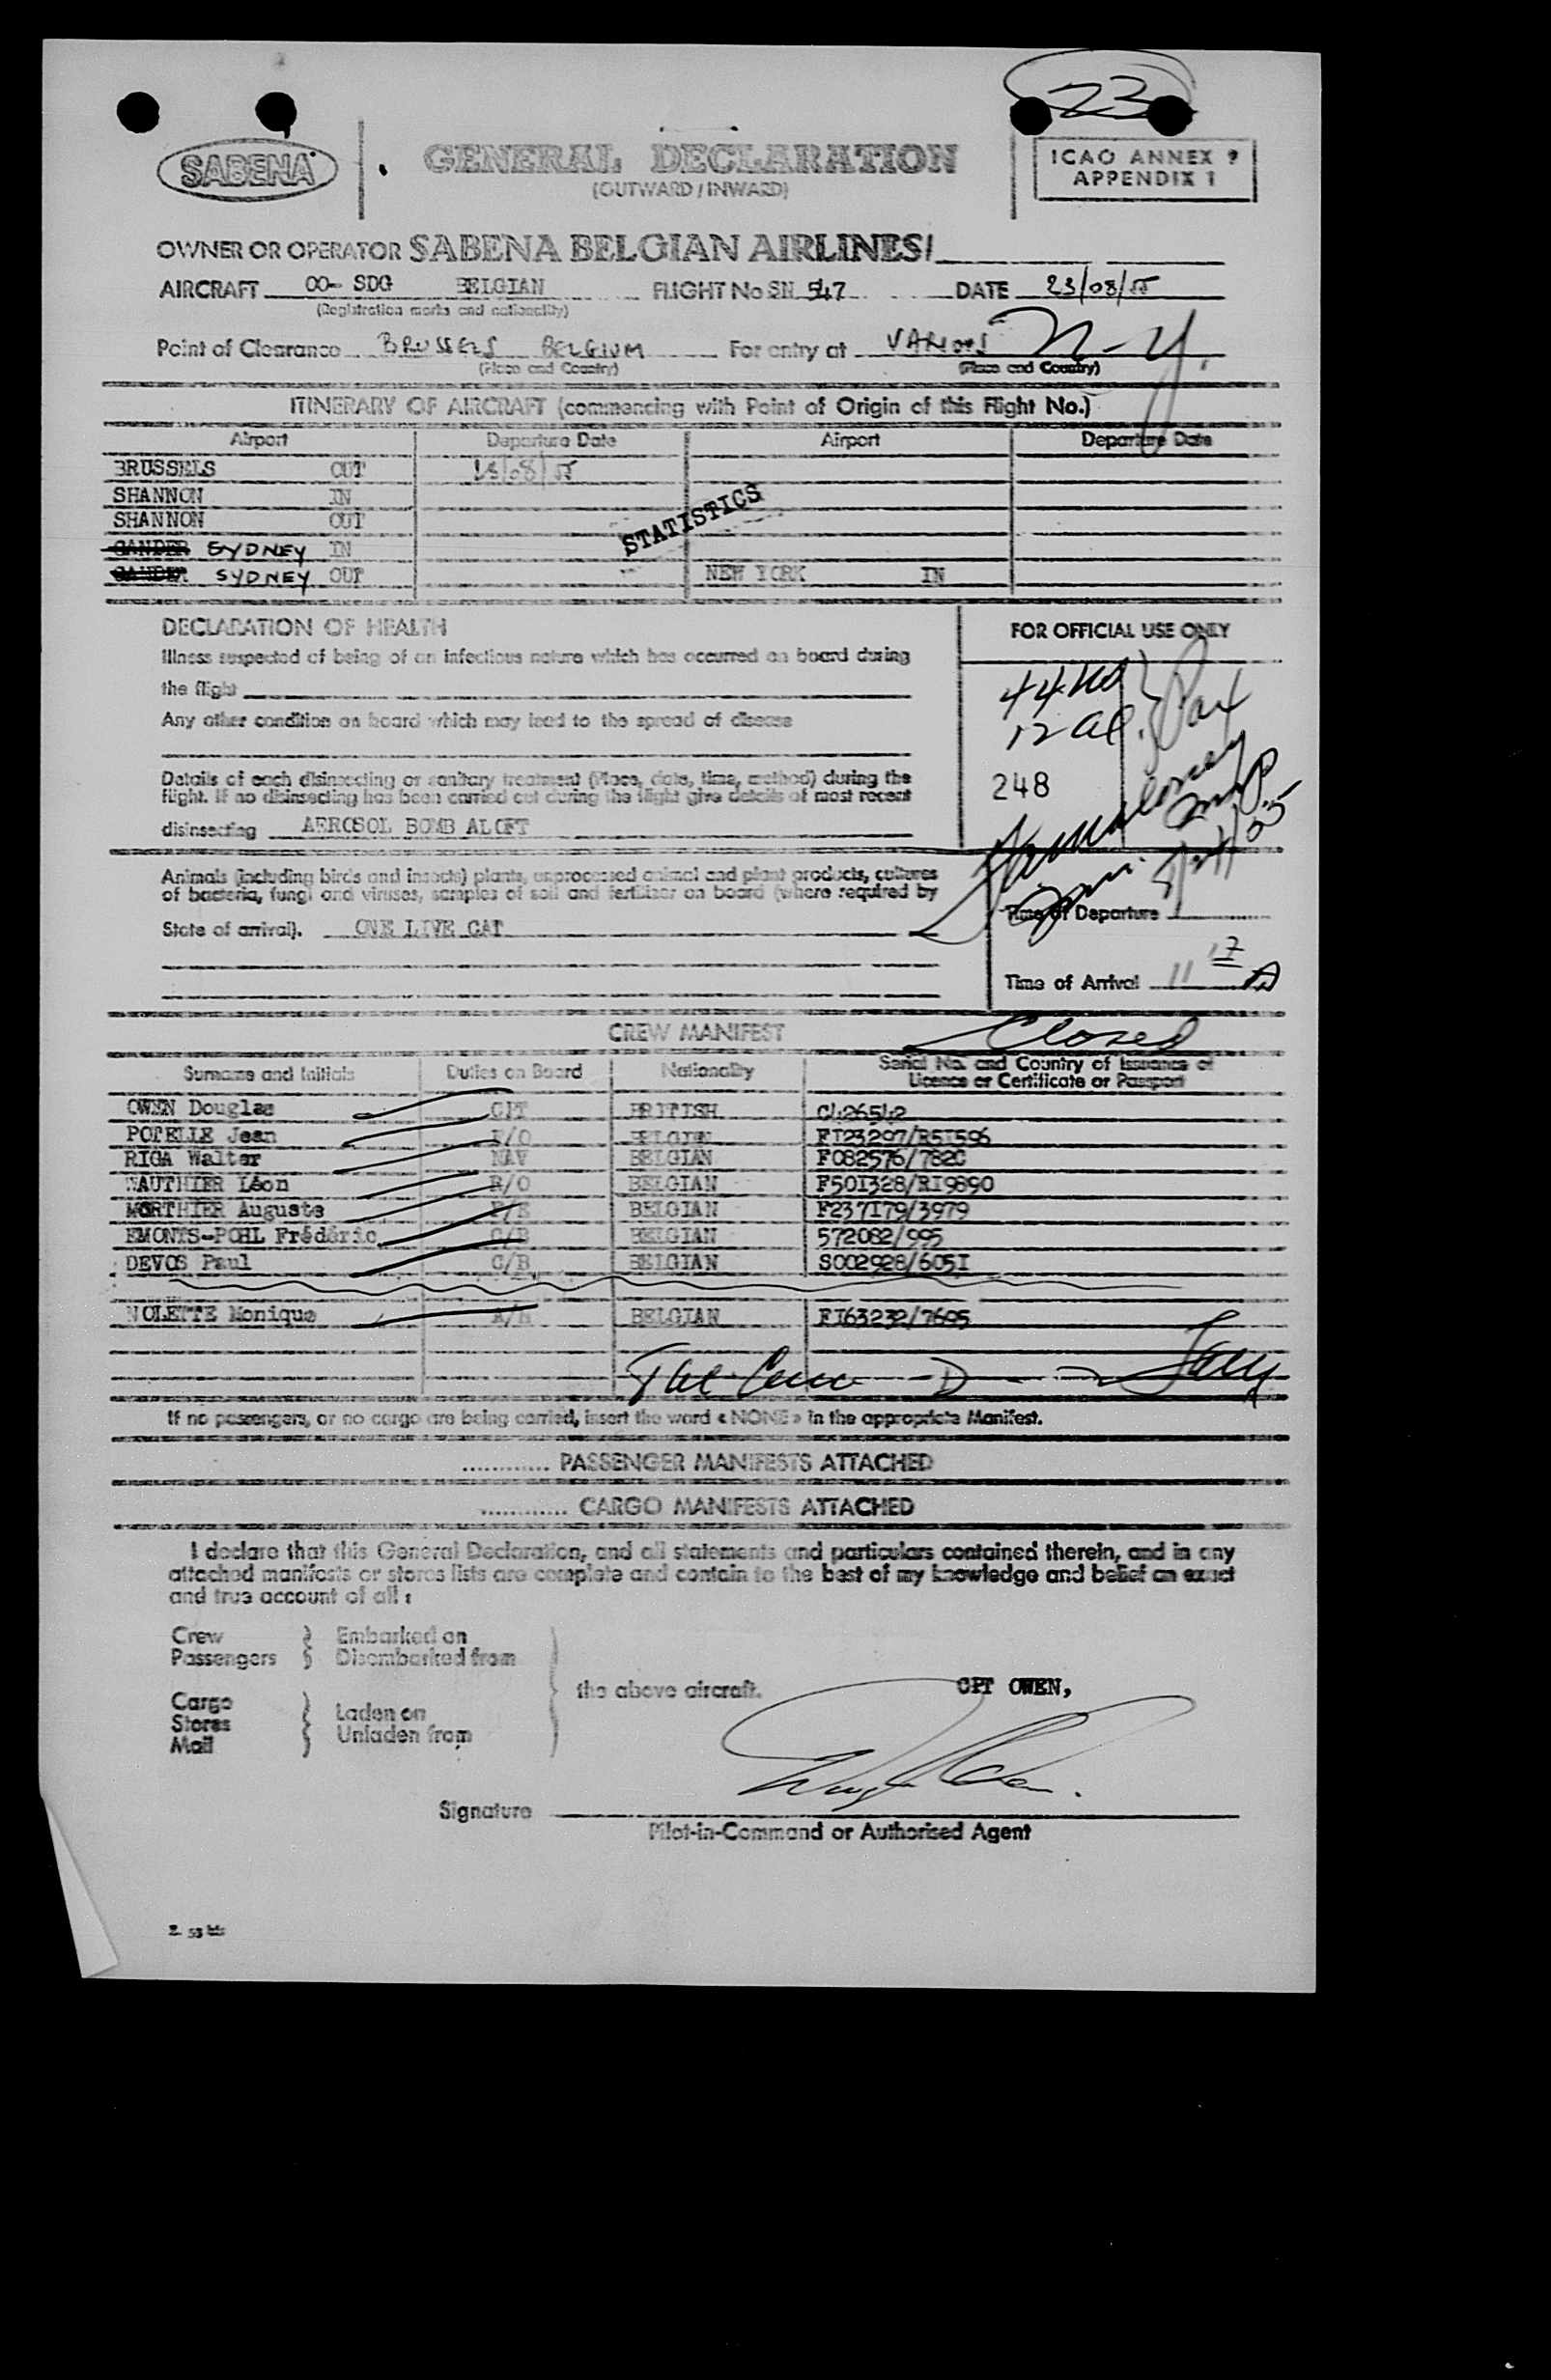 23
SABENA
GENERAL DECLARATION
(OUTWARD / INWARD)
ICAO ANNEX 9
APPENDIX 1
OWNER OR OPERATOR SABENA BELGIAN AIRLINES/
AIRCRAFT OO- SDG BELGIAN FLIGHT No SN 547 DATE 23/08/55
(Registration marks and nationality)
Point of Clearance BRUSSELS BELGIUM For entry at VARIOUS N-Y.
(Place and Country) (Place and Country)
ITINERARY OF AIRCRAFT (commencing with Point of Origin of this Flight No.)
Airport Departure Date Airport Departure Date
BRUSSELS OUT 23/08/55
SHANNON IN
SHANNON OUT
STATISTICS
GANDER SYDNEY IN
GANDER SYDNEY OUT NEW YORK IN
DECLARATION OF HEALTH
FOR OFFICIAL USE ONLY
Illness suspected of being of an infectious nature which has occurred on board during
the flight
Any other condition on board which may lead to the spread of disease
12 al. Pax
Details of each disinsecting or sanitary treatment (Place, date, time, method) during the
flight. If no disinsecting has been carried out during the flight give details of most recent
248
disinsecting AEROSOL BOMB ALOFT
Animals (including birds and insects) plants, unprocessed animal and plant products, cultures
of bacteria, fungi and viruses, samples of soil and fertilizer on board (where required by
State of arrival). ONE LIVE CAT
Time of Departure
Time of Arrival 11 17 A
CREW MANIFEST Closed
Surname and Initials Duties on Board Nationality Serial No. and Country of Issuance of
Licence or Certificate or Passport
OWEN Douglas CPT BRITISH C426542
POTELLE Jean F/O BELGIAN FI23297/R5I596
RIGA Walter NAV BELGIAN F082576/782C
WAUTHIER Léon R/O BELGIAN F50I328/RI9890
MORTHIER Auguste F/E BELGIAN F237I79/3979
EMONTS-POHL Frédéric C/B BELGIAN 572082/995
DEVOS Paul C/B BELGIAN S002928/605I
NOLETTE Monique A/H BELGIAN FI63232/7695
If no passengers, or no cargo are being carried, insert the word « NONE » in the appropriate Manifest.
............ PASSENGER MANIFESTS ATTACHED
............ CARGO MANIFESTS ATTACHED
I declare that this General Declaration, and all statements and particulars contained therein, and in any
attached manifests or stores lists are complete and contain to the best of my knowledge and belief an exact
and true account of all :
Crew Embarked on
Passengers Disembarked from
the above aircraft. CPT OWEN,
Cargo
Stores Laden on
Mail Unladen from
Signature
Pilot-in-Command or Authorised Agent